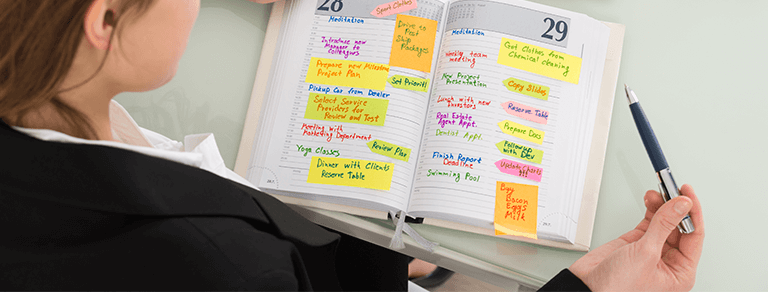 28
Sport Clothes
Meditation
Introduce new
Manager to
Colleagues
Drive to
Post
Ship
Packages
Prepare new Milestone
Project Plan
Set Priority!
Pickup Car from Dealer
Select Service
Providers for
Review and Test
Meeting with
Marketing Department
Review Plan
Yoga Classes
Dinner with Clients
Reserve Table
29
Meditation
Weekly team
meeting
Get Clothes from
Chemical cleaning
New Project
Presentation
Copy Slides
Lunch with new
investors
Reserve Table
Real Estate
Agent Appt.
Prepare Docs
Dentist Appt.
Followup with
Dev
Finish Report
Deadline
Update charts
Swimming Pool
Buy
Bacon
Eggs
Milk